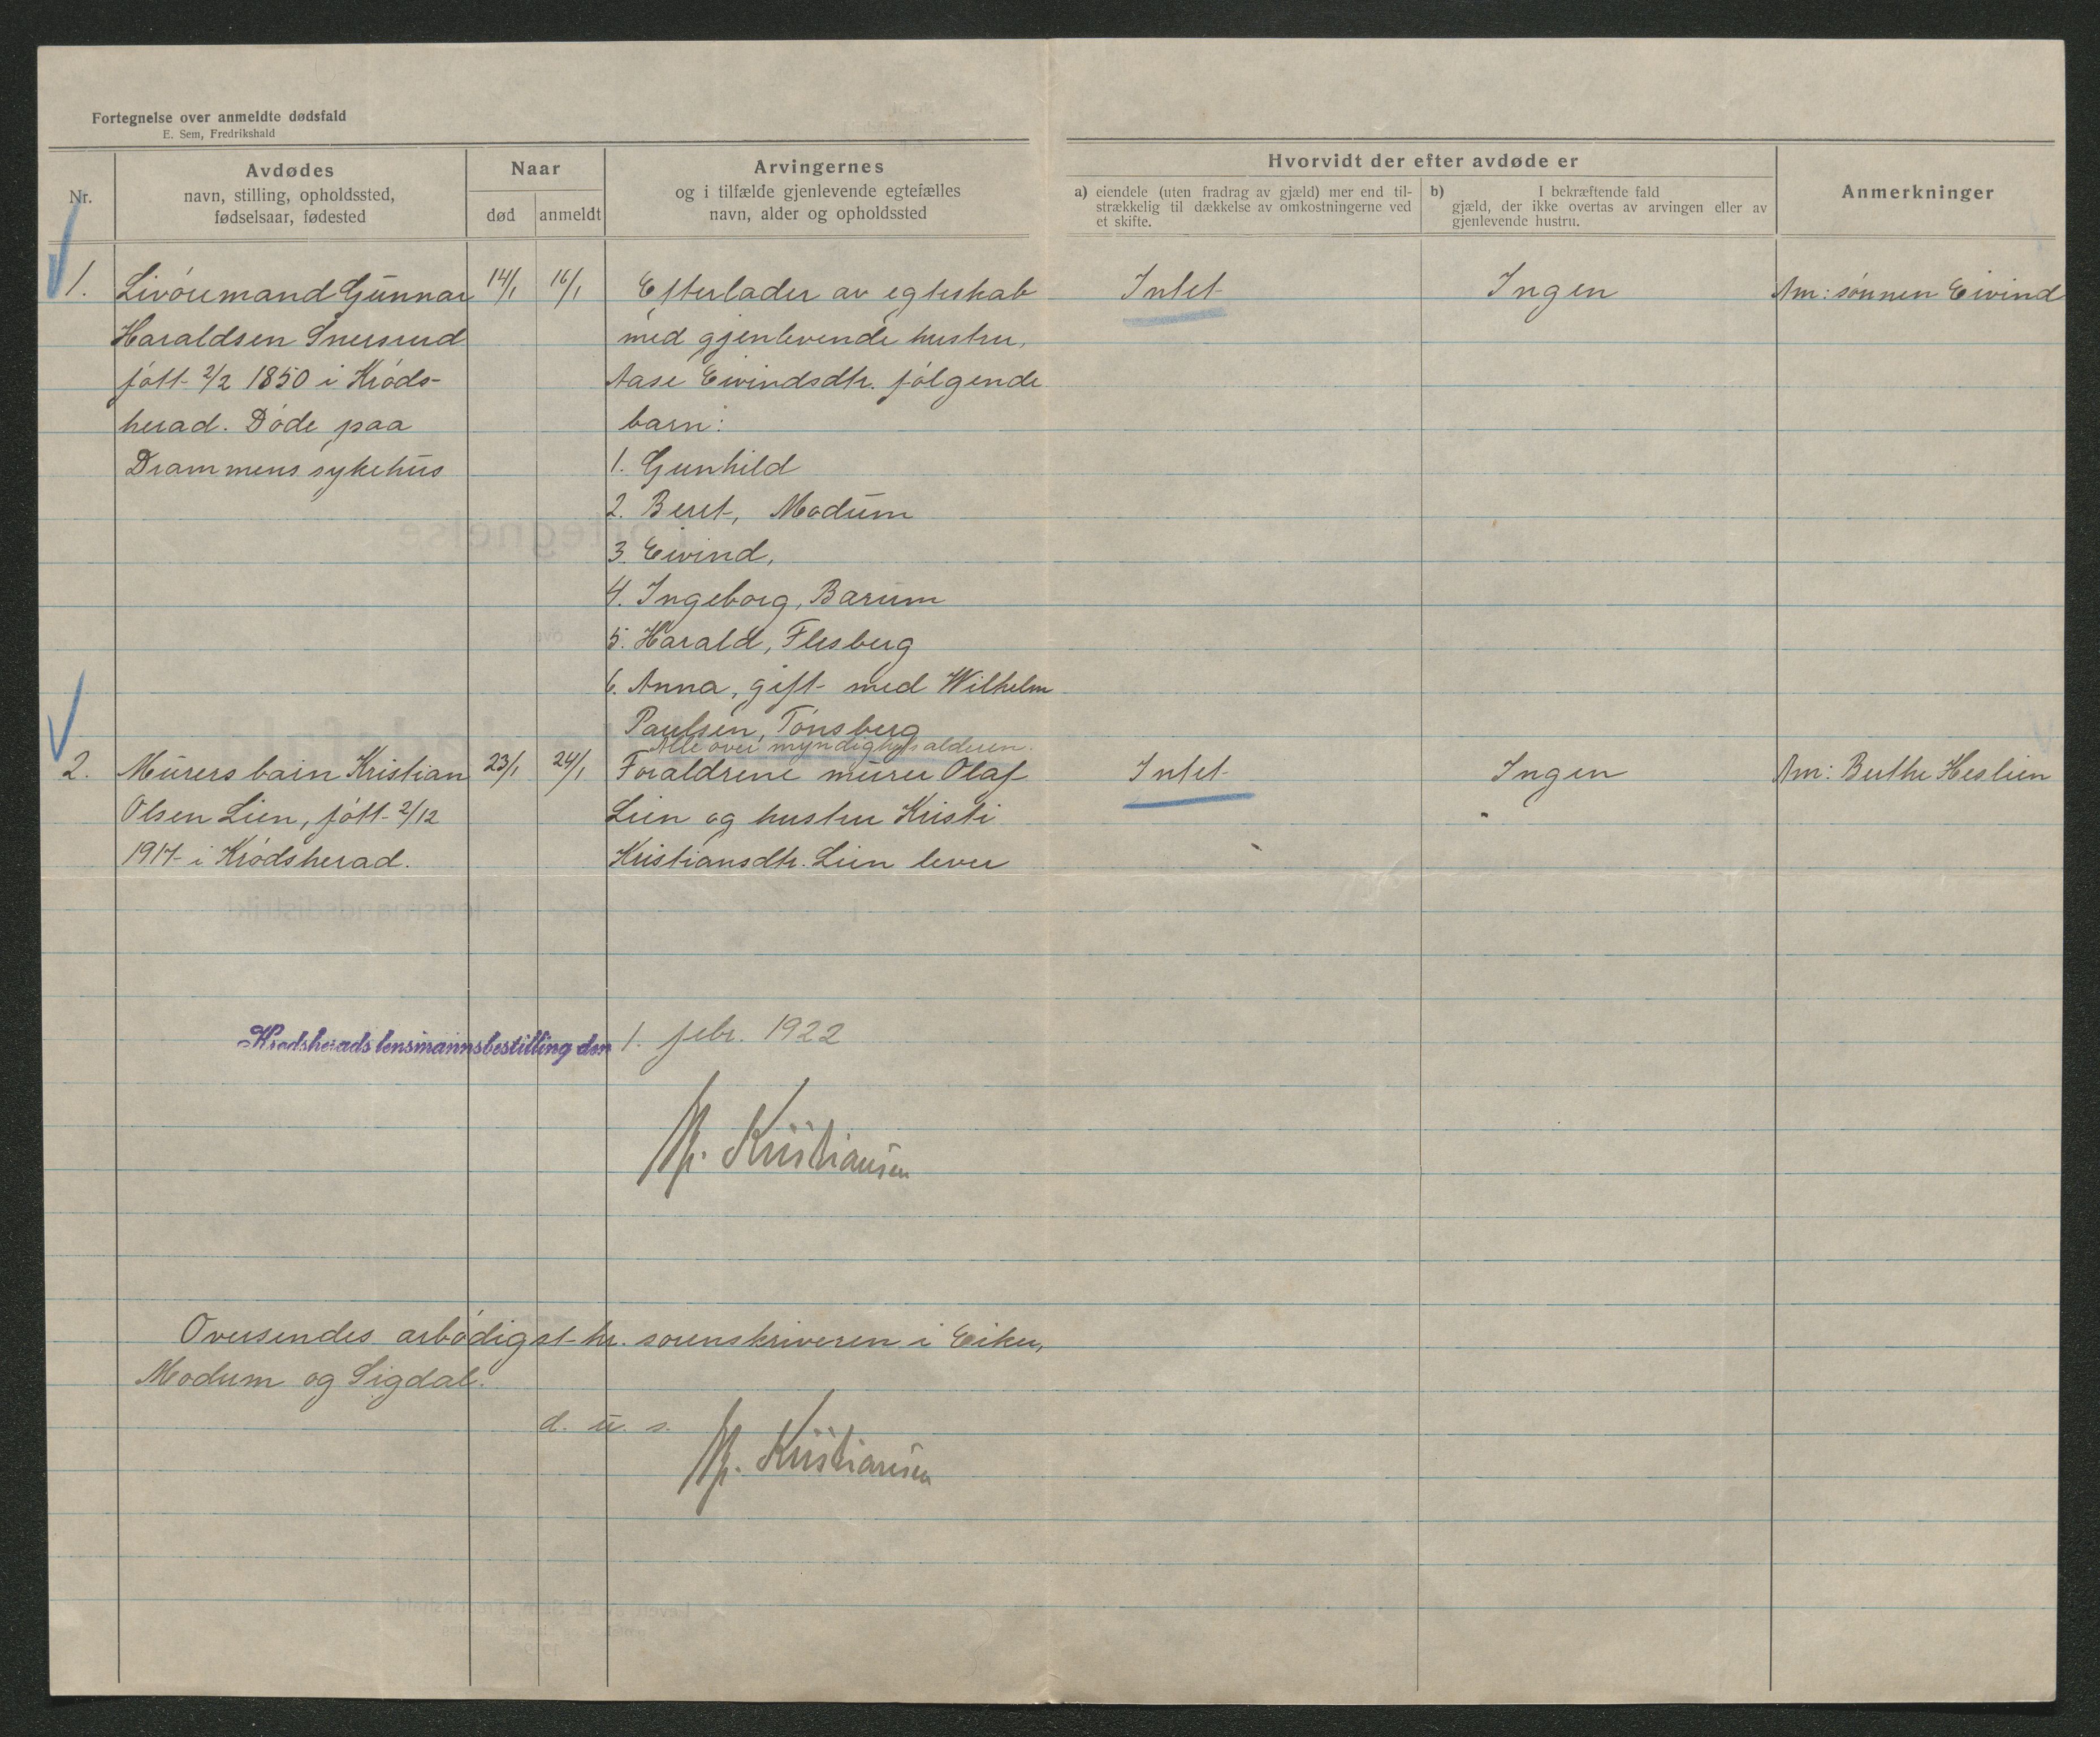 Fortegnelse over anmeldte dødsfald
E. Sem, Fredrikshald
Nr.
Avdødes
navn, stilling, opholdssted,
fødselsaar, fødested
Naar
død
anmeldt
Arvingernes
og i tilfælde gjenlevende egtefælles
navn, alder og opholdssted
Hvorvidt der efter avdøde er
a) eiendele (uten fradrag av gjæld) mer end til-
strækkelig til dækkelse av omkostningerne ved
et skifte.
b) I bekræftende fald
gjæld, der ikke overtas av arvingen eller av
gjenlevende hustru.
Anmerkninger
1. Livøremand Gunnar 14/1 16/1 Efterlader av egteskab Intet Ingen Am: sønnen Eivind
Haraldsen Snersrud med gjenlevende hustru,
født 2/2 1850 i Kröds- Aase Eivindsdtr. følgende
herad. Døde paa barn:
Drammens sykehus 1. Gunhild
2. Beret, Modum
3. Eivind,
4. Ingeborg, Barum
5. Harald, Flesberg
6. Anna, gift med Wilhelm
Paulsen, Tønsberg
Alle over myndighetsalderen.
2. Murers barn Kristian 23/1 24/1 Foraldrene murer Olaf Intet Ingen Am: Berthe Heslien
Olsen Lien, født 2/12 Lien og hustru Kristi
1917 i Krödsherad. Kristiansdtr. Lien lever
Krødsherads lensmannsbestilling den 1. febr. 1922
Kristiansen
Oversendes ærbødigst hr. sorenskriveren i Eiker,
Modum og Sigdal.
d. u. s.
Kristiansen